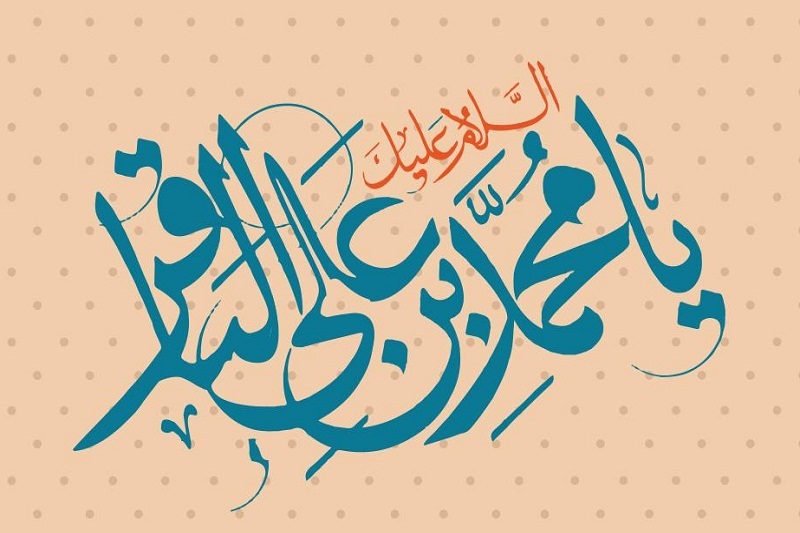 السَّلامُ عَلَیكَ
یا مُحمّدَ بن علی الباقر